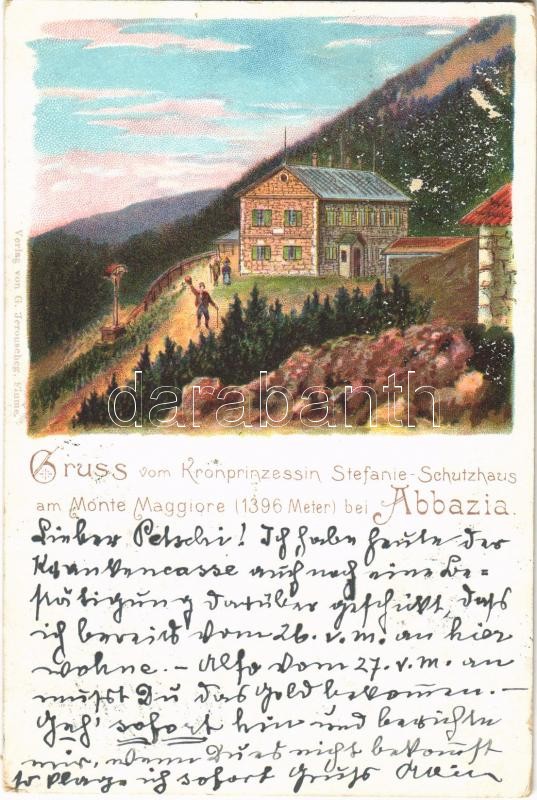 Verlag von G. Jerouscheg, Fiume.
darabanth
Gruss vom Kronprinzessin Stefanie-Schutzhaus
am Monte Maggiore (1396 Meter) bei Abbazia.
Lieber Petschi! Ich habe heute der
Krankencasse auch noch eine Be=
stätigung darüber geschickt, daß
ich bereits vom 26. v. M. an hier
wohne. – Also vom 27. v. M. an
mußt Du das Geld bekom̅en. –
Geh' sofort hin und berichte
mir, wenn Du es nicht bekom̅st
so klage ich sofort Gruß